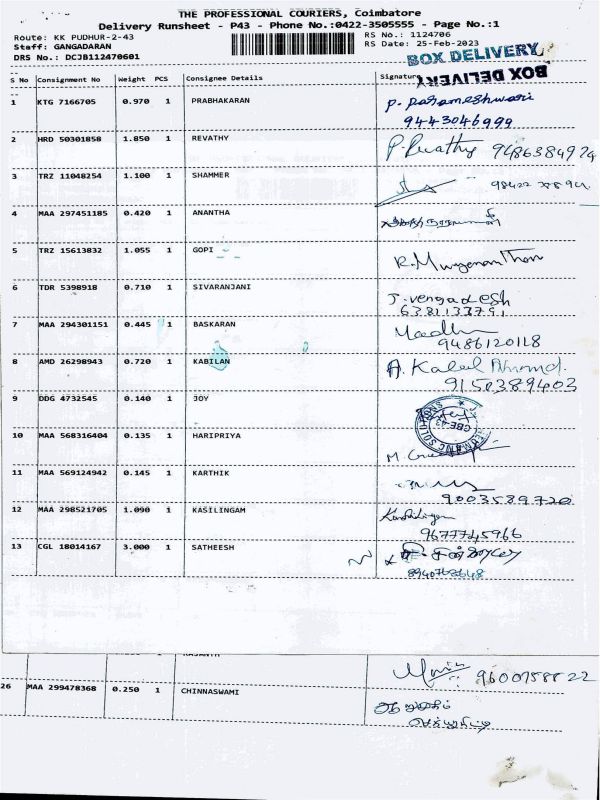 THE PROFESSIONAL COURIERS, Coimbatore
Delivery Runsheet - P43 - Phone No.:0422-3505555 - Page No.:1
Route: KK PUDHUR-2-43 RS No.: 1124706
Staff: GANGADARAN RS Date: 25-Feb-2023
DRS No.: DCJB112470601 BOX DELIVERY
BOX DELIVERY
S No Consignment No Weight PCS Consignee Details Signature
1 KTG 7166705 0.970 1 PRABHAKARAN P. Parameshwari
9443046999
2 HRD 50301858 1.850 1 REVATHY P. Revathy 9486384974
3 TRZ 11048254 1.100 1 SHAMMER
4 MAA 297451185 0.420 1 ANANTHA
5 TRZ 15613832 1.055 1 GOPI
6 TDR 5398918 0.710 1 SIVARANJANI J. vengadesh
6381133751
7 MAA 294301151 0.445 1 BASKARAN Madhu
9486120118
8 AMD 26298943 0.720 1 KABILAN A. Kaleel Ahmed.
9150389403
9 DDG 4732545 0.140 1 JOY
10 MAA 568316404 0.135 1 HARIPRIYA M.
11 MAA 569124942 0.145 1 KARTHIK
9003589720
12 MAA 298521705 1.090 1 KASILINGAM Kasilingam
9677745966
13 CGL 18014167 3.000 1 SATHEESH
8940768648
9600758822
26 MAA 299478368 0.250 1 CHINNASWAMI